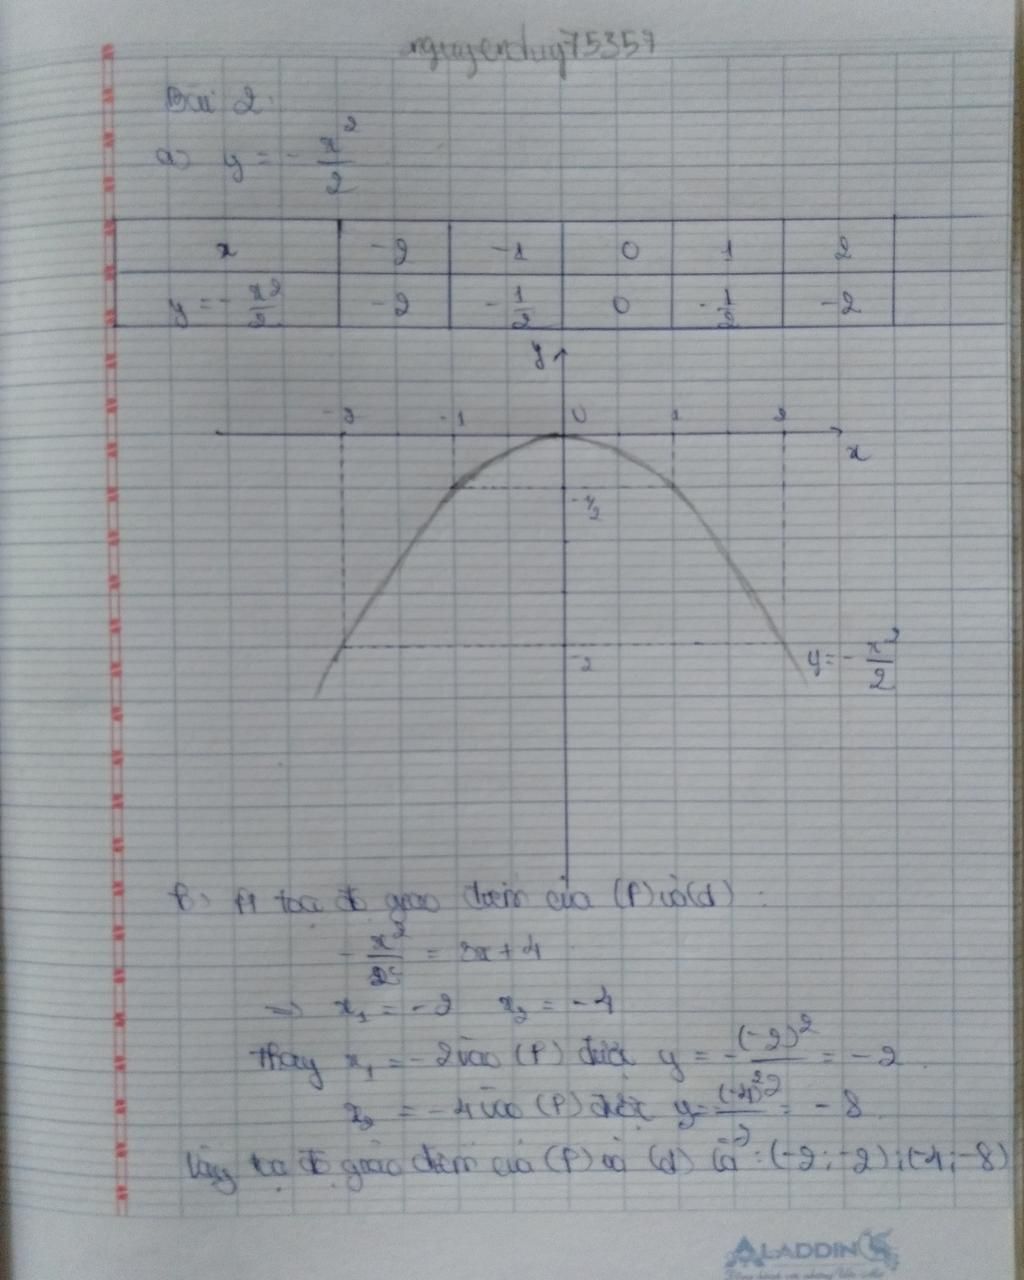 nguyenduy75359
Bài 2.
a) y = - x²/2
x -2 -1 0 1 2
y = - x²/2 -2 -1/2 0 -1/2 -2
y
-2 -1 0 1 2
x
-1/2
-2
y = - x²/2
b) Pt tọa độ giao điểm của (P) và (d) :
- x²/2 = 3x + 4
=> x₁ = -2 x₂ = -4
Thay x₁ = -2 vào (P) được y = - (-2)²/2 = -2
x₂ = -4 vào (P) được y = (-4)²/2 = -8
Vậy tọa độ giao điểm của (P) và (d) là : (-2 ; -2) ; (-4 ; -8)
ALADDIN